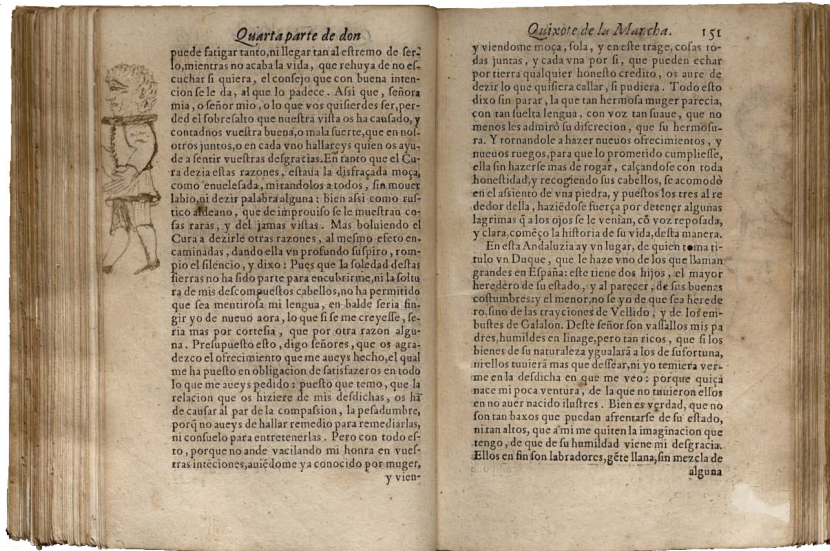 Quarta parte de don
puede fatigar tanto, ni llegar tan al eſtremo de ſer-
lo, mientras no acaba la vida, que rehuya de no eſ-
cuchar ſi quiera, el conſejo que con buena inten-
cion ſe le da, al que lo padece. Aſsi que, ſeñora
mia, o ſeñor mio, o lo que vos quiſierdes ſer, per-
ded el ſobreſalto que nueſtra viſta os ha cauſado, y
contadnos vueſtra buena, o mala ſuerte, que en noſ-
otros juntos, o en cada vno hallareys quien os ayu-
de a ſentir vueſtras deſgracias. En tanto que el Cu-
ra dezia eſtas razones, eſtaua la disfraçada moça,
como enueleſada, mirandolos a todos, ſin mouer
labio, ni dezir palabra alguna: bien aſsi como ruſ-
tico aldeano, que de improuiſo ſe le mueſtran co-
ſas raras, y del jamas viſtas. Mas boluiendo el
Cura a dezirle otras razones, al meſmo efeto en-
caminadas, dando ella vn profundo ſuſpiro, rom-
pio el ſilencio, y dixo: Pues que la ſoledad deſtas
ſierras no ha ſido parte para encubrirme, ni la ſoltu
ra de mis deſcompueſtos cabellos, no ha permitido
que ſea mentiroſa mi lengua, en balde ſeria fin-
gir yo de nueuo aora, lo que ſi ſe me creyeſſe, ſe-
ria mas por corteſia, que por otra razon algu-
na. Preſupueſto eſto, digo ſeñores, que os agra-
dezco el ofrecimiento que me aueys hecho, el qual
me ha pueſto en obligacion de ſatisfazeros en todo
lo que me aueys pedido: pueſto que temo, que la
relacion que os hiziere de mis deſdichas, os ha
de cauſar al par de la compaſsion, la peſadumbre,
porq̃ no aueys de hallar remedio para remediarlas,
ni conſuelo para entretenerlas. Pero con todo eſ-
to, porque no ande vacilando mi honra en vueſ-
tras intẽciones, auiẽdome ya conocido por muger,
y vien-
Quixote de la Mancha. 151
y viendome moça, ſola, y en eſte trage, coſas to-
das juntas, y cada vna por ſi, que pueden echar
por tierra qualquier honeſto credito, os aure de
dezir lo que quiſiera callar, ſi pudiera. Todo eſto
dixo ſin parar, la que tan hermoſa muger parecia,
con tan ſuelta lengua, con voz tan ſuaue, que no
menos les admirò ſu diſcrecion, que ſu hermoſu-
ra. Y tornandole a hazer nueuos ofrecimientos, y
nueuos ruegos, para que lo prometido cumplieſſe,
ella ſin hazerſe mas de rogar, calçandoſe con toda
honeſtidad, y recogiendo ſus cabellos, ſe acomodò
en el aſsiento de vna piedra, y pueſtos los tres al re
dedor della, haziẽdoſe fuerça por detener algunas
lagrimas q̃ a los ojos ſe le venian, cõ voz repoſada,
y clara, comẽço la hiſtoria de ſu vida, deſta manera.
En eſta Andaluzia ay vn lugar, de quien toma ti-
tulo vn Duque, que le haze vno de los que llaman
grandes en Eſpaña: eſte tiene dos hijos, el mayor
heredero de ſu eſtado, y al parecer, de ſus buenas
coſtumbres: y el menor, no ſe yo de que ſea herede
ro, ſino de las trayciones de Vellido, y de los em-
buſtes de Galalon. Deſte ſeñor ſon vaſſallos mis pa
dres, humildes en linage, pero tan ricos, que ſi los
bienes de ſu naturaleza ygualarà a los de ſu fortuna,
ni ellos tuuierà mas que deſſear, ni yo temiera ver-
me en la deſdicha en que me veo: porque quiçà
nace mi poca ventura, de la que no tuuieron ellos
en no auer nacido iluſtres. Bien es verdad, que no
ſon tan baxos que puedan afrentarſe de ſu eſtado,
ni tan altos, que a mi me quiten la imaginacion que
tengo, de que de ſu humildad viene mi deſgracia.
Ellos en fin ſon labradores, gẽte llana, ſin mezcla de
alguna